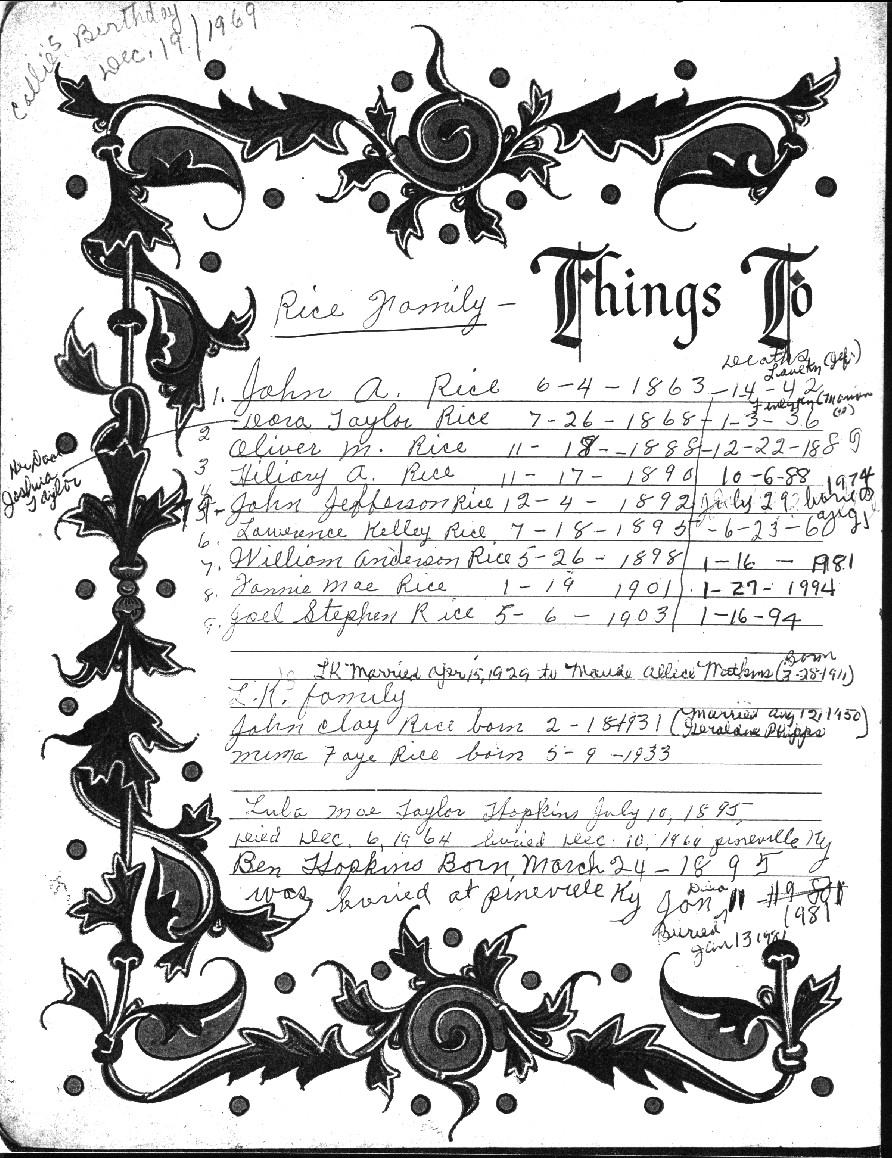 Callie's Birthday
Dec. 19/1969
Things To
Rice Family —
Deaths
1. John A. Rice 6-4-1863 -14-42
Dora Taylor Rice 7-26-1868 -1-3-36
2 Oliver M. Rice 11-18-1888 -12-22-1889
3 Hiliary A. Rice 11-17-1890 10-6-88
Her Dad
Joshua
Taylor
John Jefferson Rice 12-4-1892 July 29 buried 1974
Aug 1
6. Lawrence Kelley Rice 7-18-1895 -6-23-60
7. William Anderson Rice 5-26-1898 1-16-1981
8. Fannie Mae Rice 1-19 1901 1-27-1994
9. Joel Stephen Rice 5-6-1903 1-16-94
LK Married Apr 15, 1929 to Maude Allice Matkins (born 3-28-1911)
L.K. family
John Clay Rice born 2-18-1931 (Married Aug 12, 1950
Geraldine Phipps)
Mima Faye Rice born 5-9-1933
Lula Mae Taylor Hopkins July 10, 1895
Died Dec. 6, 1964 buried Dec. 10, 1964 pineville Ky
Ben Hopkins Born March 24-1895
was buried at pineville Ky Died Jan 11 1981
Buried
Jan 13 1981